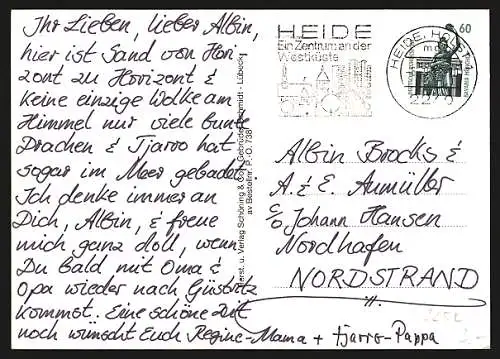 Ihr Lieben, lieber Albin,
hier ist Sand von Hori-
zont zu Horizont &
keine einzige Wolke am
Himmel nur viele bunte
Drachen & Tjarro hat
sogar im Meer gebadet.
Ich denke immer an
Dich, Albin, & freue
mich ganz doll, wenn
Du bald mit Oma &
Opa wieder nach Güstritz
kommst. Eine schöne Zeit
noch wünscht Euch Regine-Mama + Tjarro-Pappa
Verlag Schöning & Co + Gebrüder Schmidt - Lübeck
Bestellnr. P.-O. 738
HEIDE
Ein Zentrum an der
Westküste
HEIDE, HOLST
60
Albin Brocks &
A. & E. Aumüller
c/o Johann Hansen
Nordhafen
NORDSTRAND